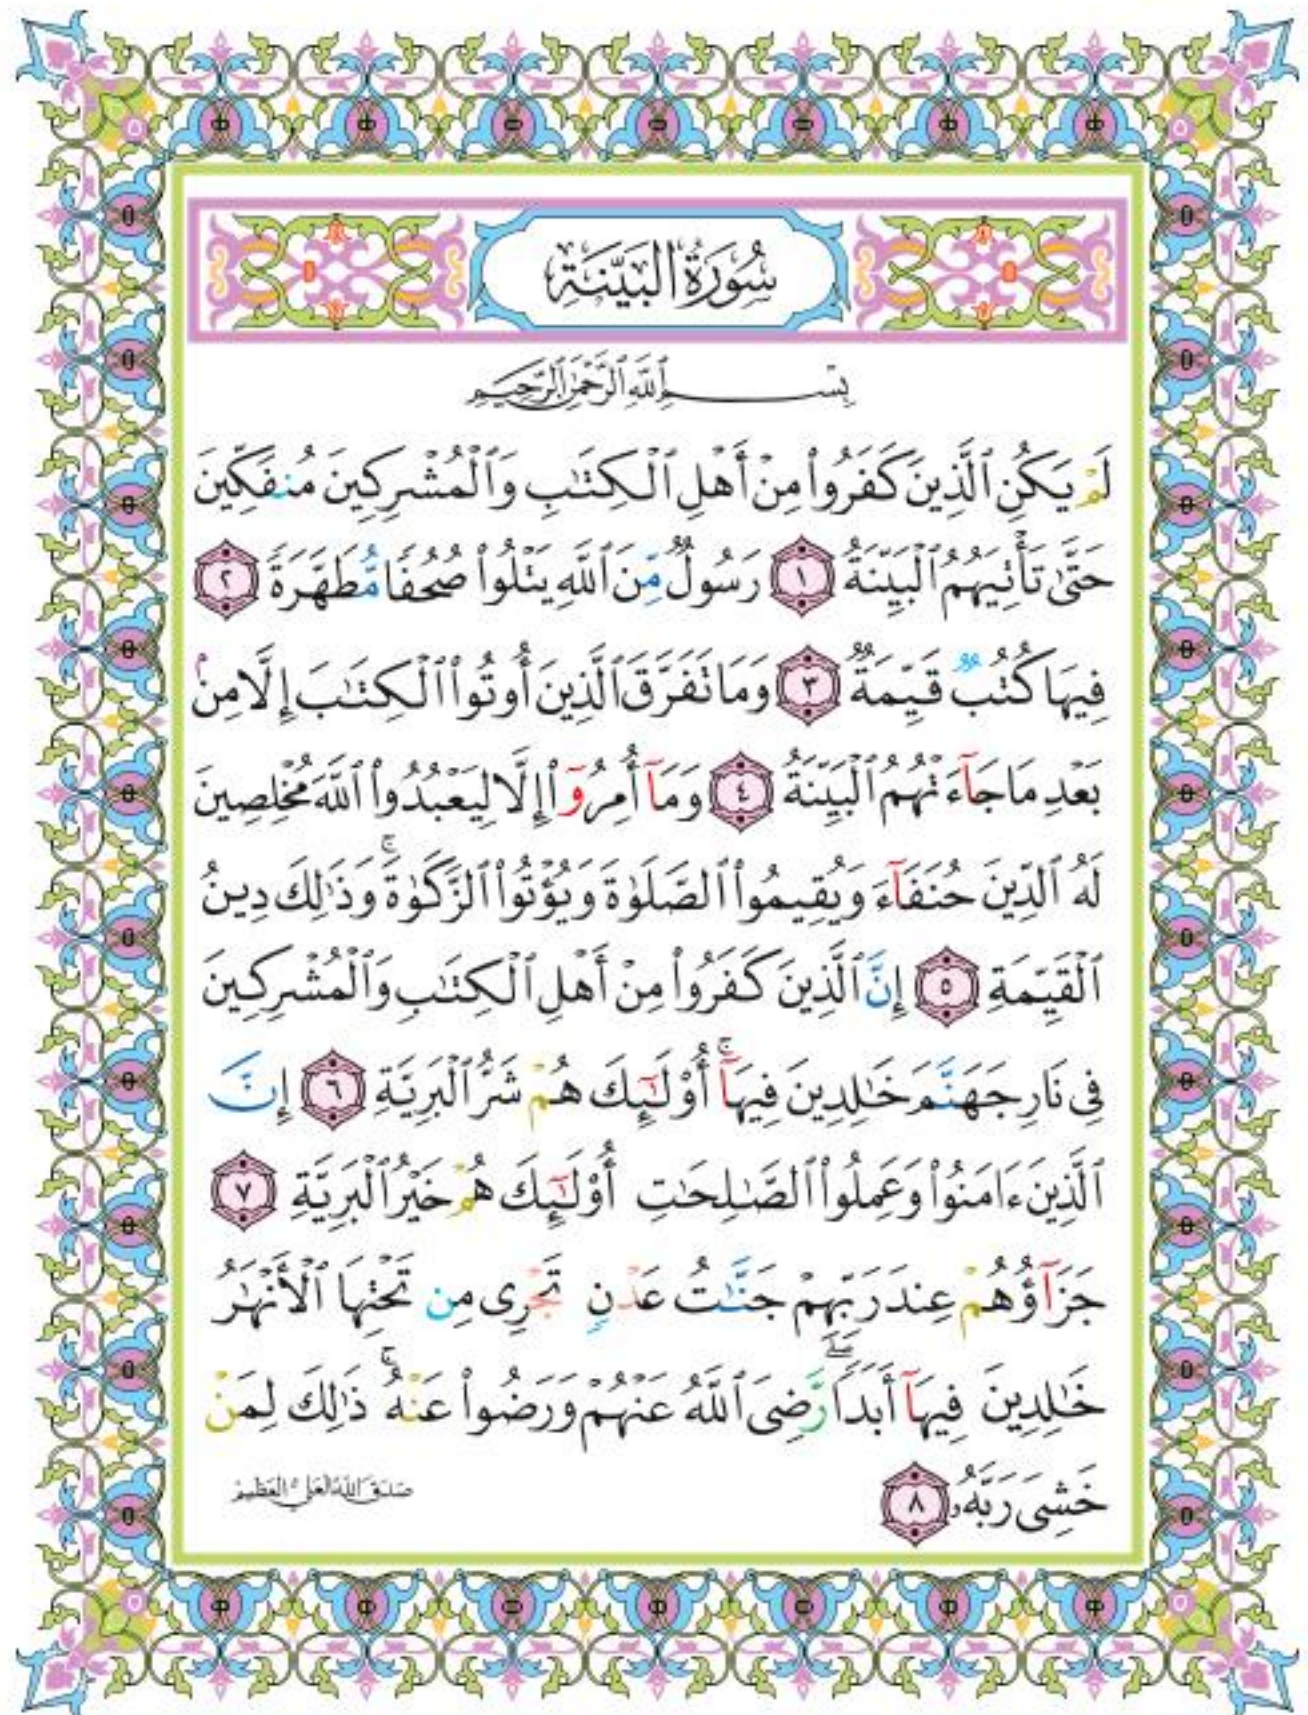 سُورَةُ البَيِّنَةِ
بِسْمِ ٱللَّهِ ٱلرَّحْمَٰنِ ٱلرَّحِيمِ
لَمْ يَكُنِ ٱلَّذِينَ كَفَرُوا۟ مِنْ أَهْلِ ٱلْكِتَٰبِ وَٱلْمُشْرِكِينَ مُنفَكِّينَ
حَتَّىٰ تَأْتِيَهُمُ ٱلْبَيِّنَةُ ١ رَسُولٌ مِّنَ ٱللَّهِ يَتْلُوا۟ صُحُفًا مُّطَهَّرَةً ٢
فِيهَا كُتُبٌ قَيِّمَةٌ ٣ وَمَا تَفَرَّقَ ٱلَّذِينَ أُوتُوا۟ ٱلْكِتَٰبَ إِلَّا مِنۢ
بَعْدِ مَا جَآءَتْهُمُ ٱلْبَيِّنَةُ ٤ وَمَآ أُمِرُوٓا۟ إِلَّا لِيَعْبُدُوا۟ ٱللَّهَ مُخْلِصِينَ
لَهُ ٱلدِّينَ حُنَفَآءَ وَيُقِيمُوا۟ ٱلصَّلَوٰةَ وَيُؤْتُوا۟ ٱلزَّكَوٰةَ ۚ وَذَٰلِكَ دِينُ
ٱلْقَيِّمَةِ ٥ إِنَّ ٱلَّذِينَ كَفَرُوا۟ مِنْ أَهْلِ ٱلْكِتَٰبِ وَٱلْمُشْرِكِينَ
فِى نَارِ جَهَنَّمَ خَٰلِدِينَ فِيهَآ ۚ أُو۟لَٰٓئِكَ هُمْ شَرُّ ٱلْبَرِيَّةِ ٦ إِنَّ
ٱلَّذِينَ ءَامَنُوا۟ وَعَمِلُوا۟ ٱلصَّٰلِحَٰتِ أُو۟لَٰٓئِكَ هُمْ خَيْرُ ٱلْبَرِيَّةِ ٧
جَزَآؤُهُمْ عِندَ رَبِّهِمْ جَنَّٰتُ عَدْنٍ تَجْرِى مِن تَحْتِهَا ٱلْأَنْهَٰرُ
خَٰلِدِينَ فِيهَآ أَبَدًا ۖ رَّضِىَ ٱللَّهُ عَنْهُمْ وَرَضُوا۟ عَنْهُ ۚ ذَٰلِكَ لِمَنْ
خَشِىَ رَبَّهُۥ ٨
صَدَقَ اللهُ العَلِيُّ العَظِيمُ